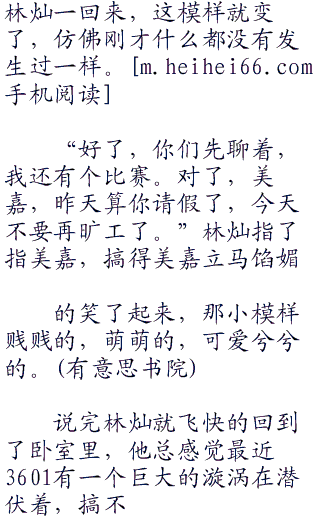 林灿一回来，这模样就变
了，仿佛刚才什么都没有发
生过一样。[m.heihei66.com
手机阅读]
“好了，你们先聊着，
我还有个比赛。对了，美
嘉，昨天算你请假了，今天
不要再旷工了。”林灿指了
指美嘉，搞得美嘉立马馅媚
的笑了起来，那小模样
贱贱的，萌萌的，可爱兮兮
的。(有意思书院)
说完林灿就飞快的回到
了卧室里，他总感觉最近
3601有一个巨大的漩涡在潜
伏着，搞不